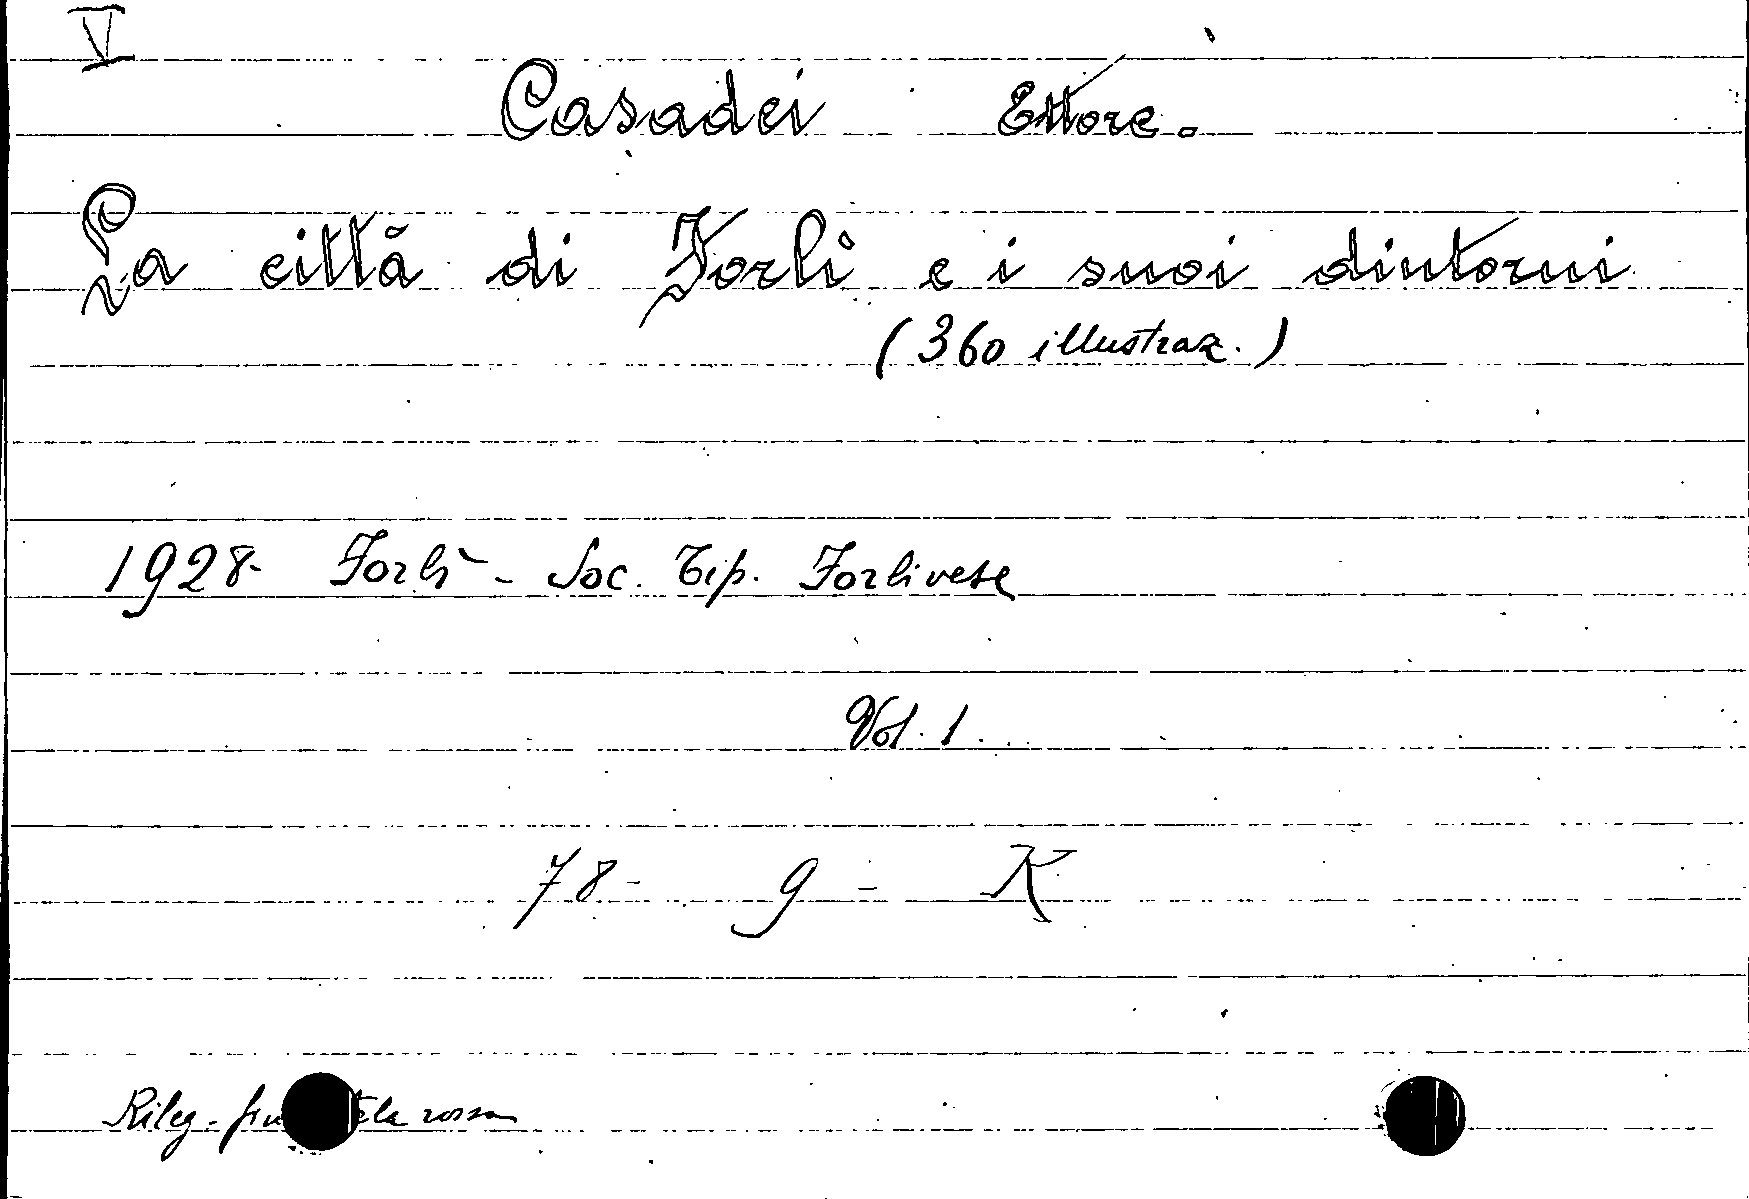 V
Casadei Ettore.
La città di Forlì e i suoi dintorni
(360 illustraz.)
1928- Forlì - Soc. Tip. Forlivese
Vol. 1.
78- 9 - K
Rileg. tela rossa